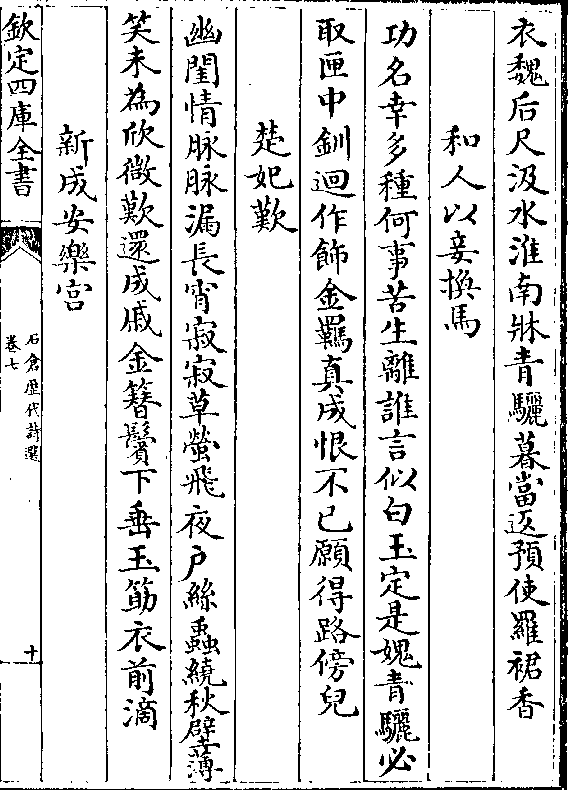 衣魏后尺汲水淮南牀青驪暮當返預使羅裙香
和人以妾換馬
功名幸多種何事苦生離誰言似白玉定是媿青驪必
取匣中釧迴作飾金羈真成恨不已願得路傍兒
楚妃歎
幽閨情脉脉漏長宵寂寂草螢飛夜戶絲蟲繞秋壁薄
笑未為欣微歎還成戚金簪鬢下垂玉筯衣前滴
新成安樂宮
欽定四庫全書
石倉歷代詩選
卷七
十